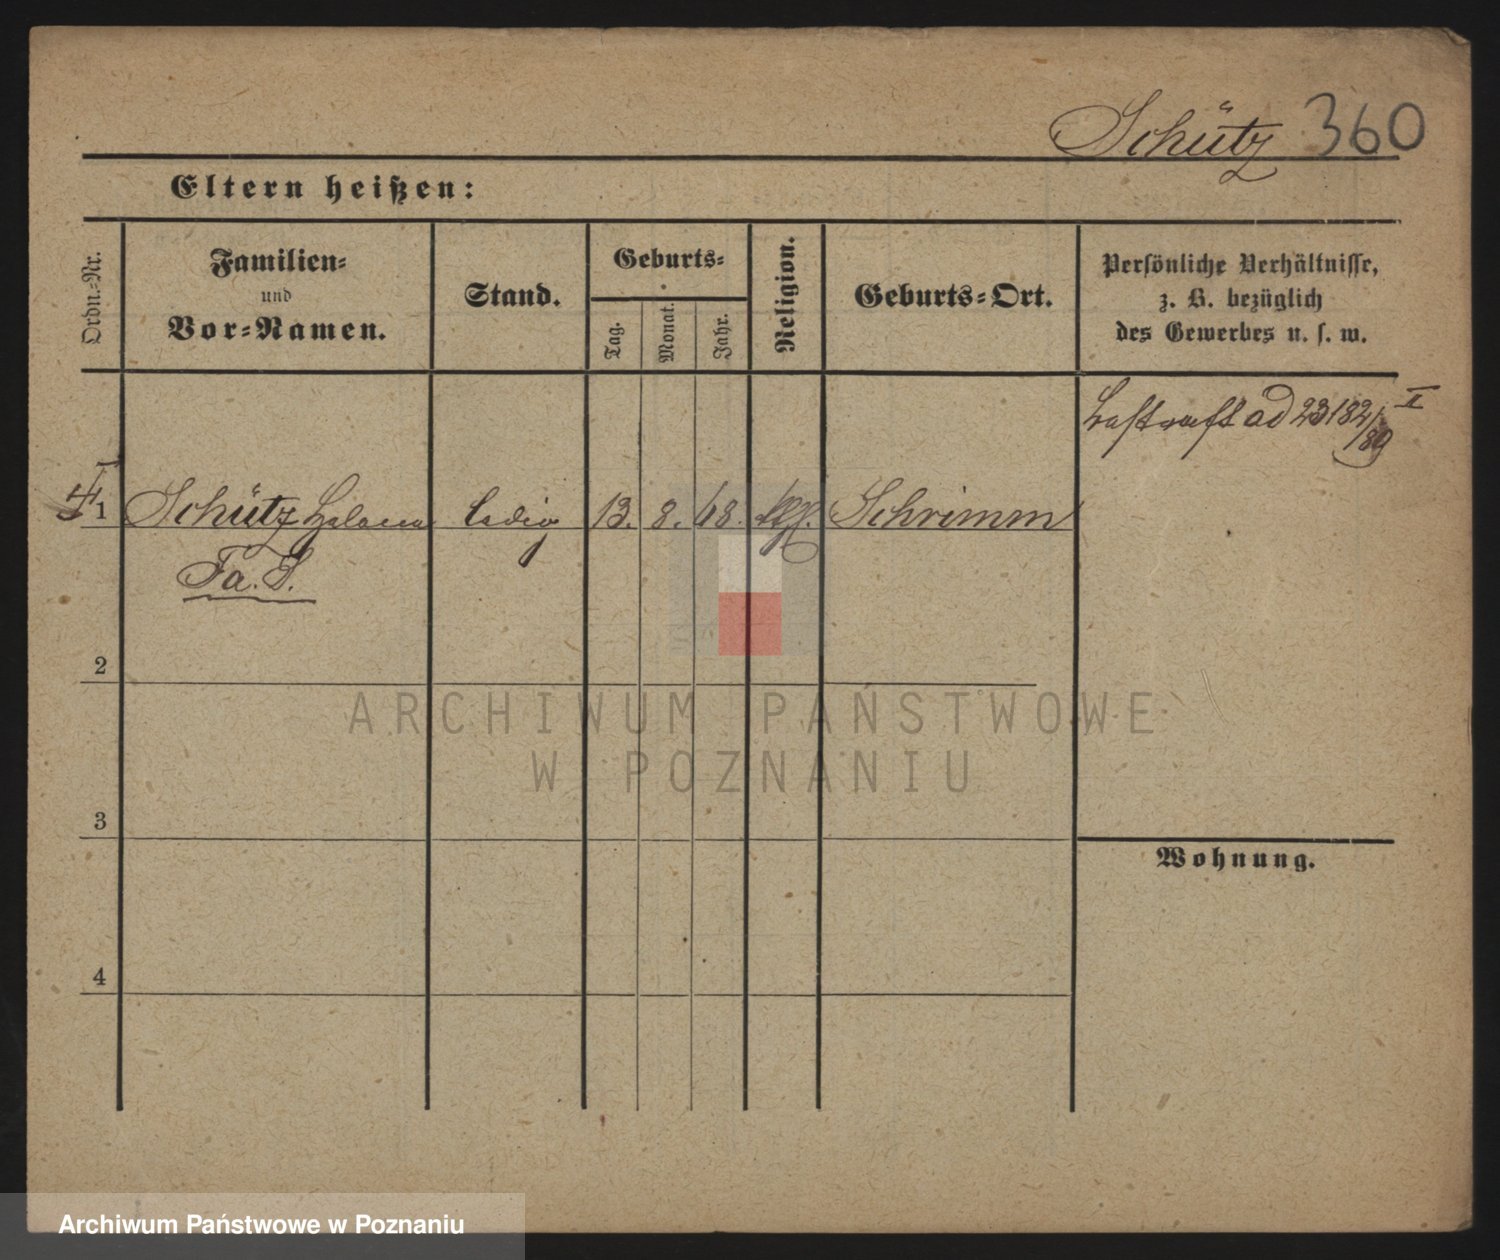 Schütz 360
Eltern heißen:
Ordn.-Nr.
Familien-
und
Vor-Namen.
Stand.
Geburts-
Tag.
Monat.
Jahr.
Religion.
Geburts-Ort.
Persönliche Verhältnisse,
z. B. bezüglich
des Gewerbes u. s. w.
ad 23182/89 I
1 Schütz Helene ledig 13. 8. 68. Schrimm
Fa. S.
2
3
4
Wohnung.
ARCHIWUM PAŃSTWOWE
W POZNANIU
Archiwum Państwowe w Poznaniu